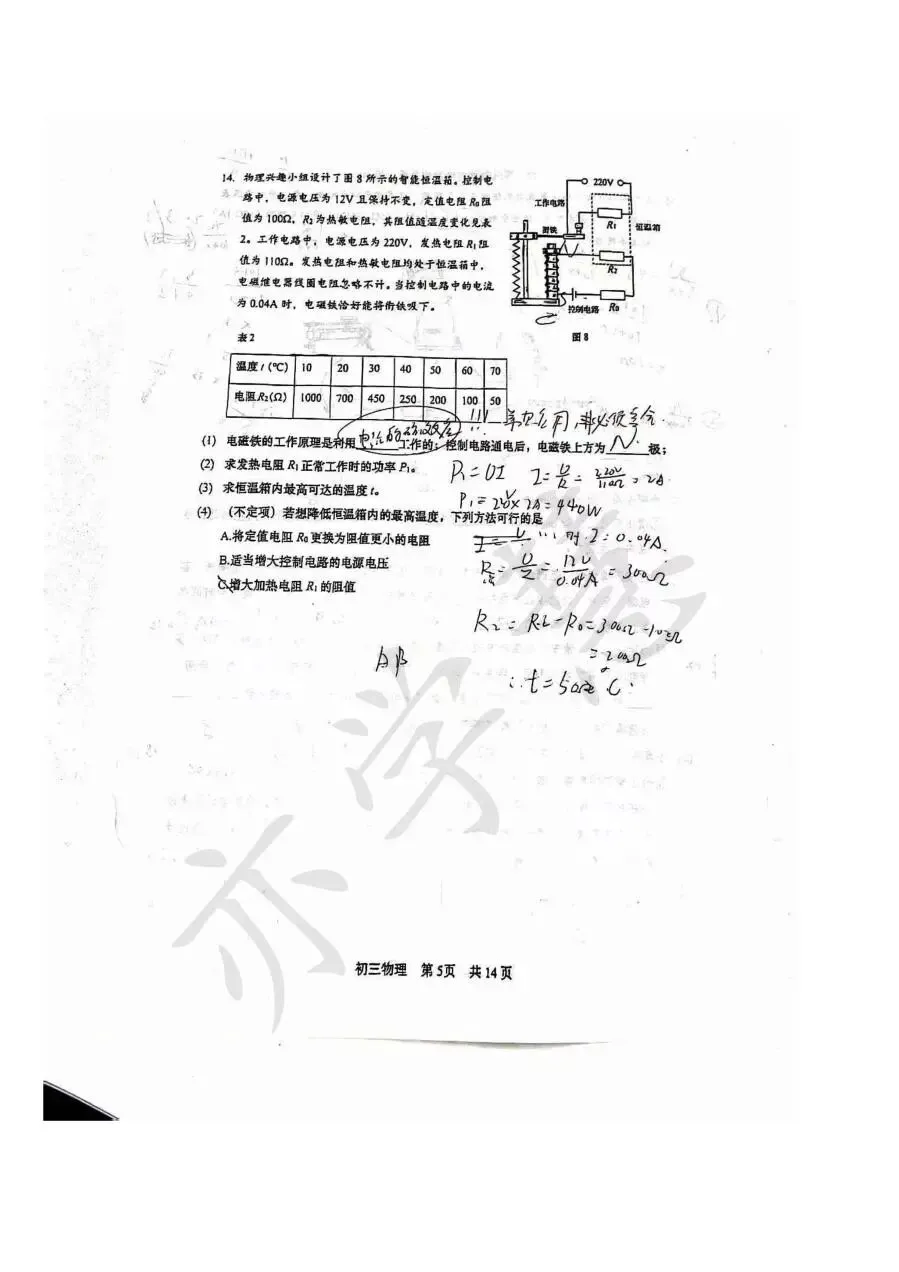 14. 物理兴趣小组设计了图 8 所示的智能恒温箱。控制电
路中，电源电压为 12V 且保持不变，定值电阻 R₀ 阻
值为 100Ω，R₂ 为热敏电阻，其阻值随温度变化见表
2。工作电路中，电源电压为 220V，发热电阻 R₁ 阻
值为 110Ω。发热电阻和热敏电阻均处于恒温箱中，
电磁继电器线圈电阻忽略不计。当控制电路中的电流
为 0.04A 时，电磁铁恰好能将衔铁吸下。
220V
工作电路
R₁
衔铁
恒温箱
R₂
控制电路 R₀
图 8
表 2
温度 t (℃) 10 20 30 40 50 60 70
电阻 R₂(Ω) 1000 700 450 250 200 100 50
(1) 电磁铁的工作原理是利用 电流的磁效应 工作的；控制电路通电后，电磁铁上方为 N 极；
(2) 求发热电阻 R₁ 正常工作时的功率 P₁。
P₁=UI I=U/R=220V/110Ω=2A
(3) 求恒温箱内最高可达的温度 t。
P₁=220V×2A=440W
(4) （不定项）若想降低恒温箱内的最高温度，下列方法可行的是
A.将定值电阻 R₀ 更换为阻值更小的电阻
∵ 时 I=0.04A.
B.适当增大控制电路的电源电压
R总=U/I=12V/0.04A=300Ω
C.增大加热电阻 R₁ 的阻值
R₂=R总-R₀=300Ω-100Ω
=200Ω
AB
∴t=50℃
亦学
初三物理 第 5页 共 14 页